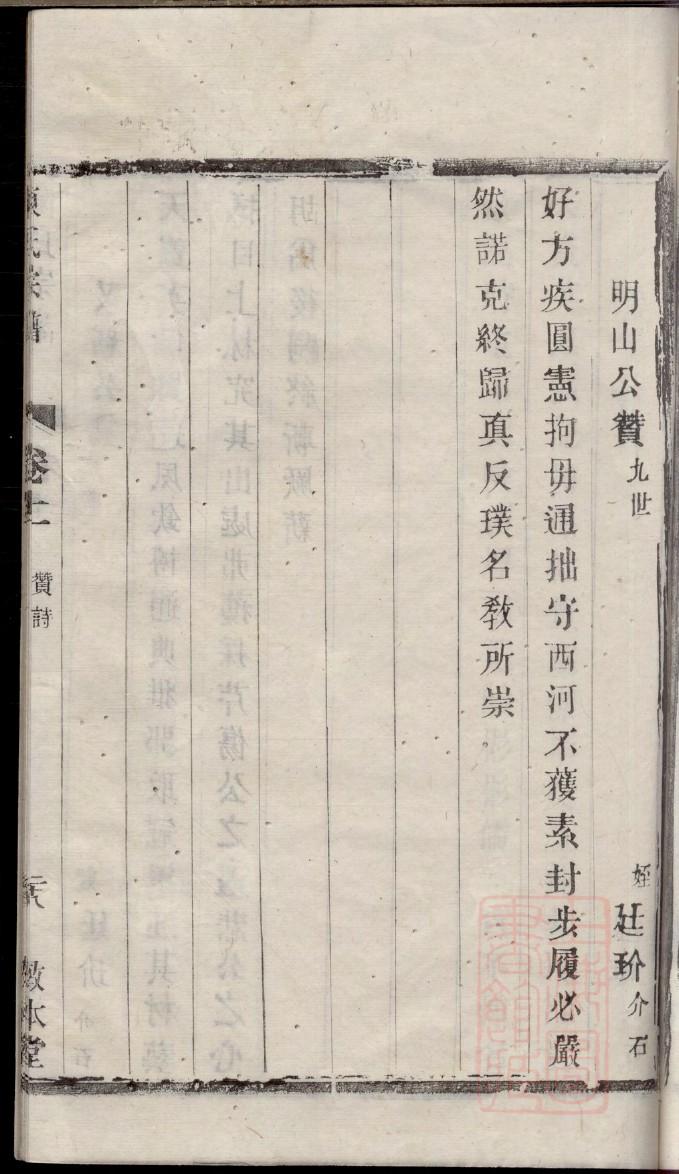 明山公贊九世 姪廷玠介石
好方疾圓憲拘毋通拙守西河不獲素封步履必嚴
然諾克終歸真反璞名敎所崇
氏宗譜 卷十一 贊詩 敬本堂